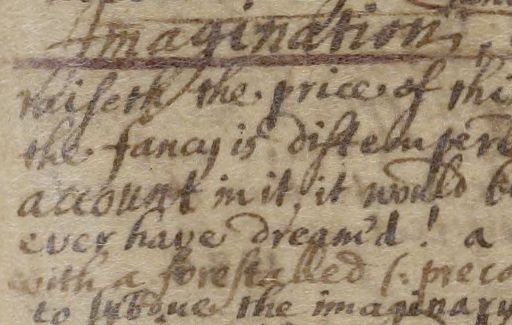 Imagination,
raiseth the price of thi
the fancy is distemper
account in it, it would b
ever have dream'd! a
with a forestalled (: preco
to subdue the imaginary